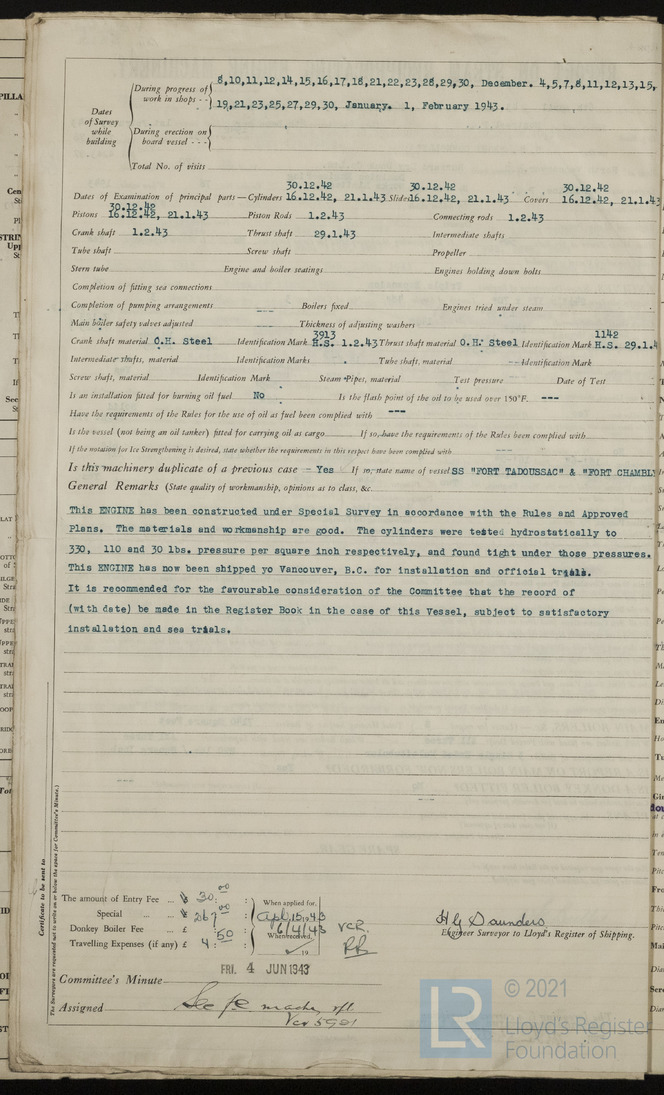 During progress of work in shops - - 8,10,11,12,14,15,16,17,18,21,22,23,28,29,30, December. 4,5,7,8,11,12,13,15,
19,21,23,25,27,29,30, January. 1, February 1943.
Dates of Survey while building
During erection on board vessel - - -
Total No. of visits
30.12.42 30.12.42 30.12.42
Dates of Examination of principal parts—Cylinders 16.12.42, 21.1.43 Slides 16.12.42, 21.1.43 Covers 16.12.42, 21.1.43
30.12.42
Pistons 16.12.42, 21.1.43 Piston Rods 1.2.43 Connecting rods 1.2.43
Crank shaft 1.2.43 Thrust shaft 29.1.43 Intermediate shafts
Tube shaft Screw shaft Propeller
Stern tube Engine and boiler seatings Engines holding down bolts
Completion of fitting sea connections
Completion of pumping arrangements --- Boilers fixed Engines tried under steam
Main boiler safety valves adjusted --- Thickness of adjusting washers
3913 1142
Crank shaft material O.H. Steel Identification Mark H.S. 1.2.43 Thrust shaft material O.H. Steel Identification Mark H.S. 29.1.4
Intermediate shafts, material Identification Marks Tube shaft, material --- Identification Mark
Screw shaft, material Identification Mark Steam Pipes, material Test pressure Date of Test
Is an installation fitted for burning oil fuel No Is the flash point of the oil to be used over 150°F. ---
Have the requirements of the Rules for the use of oil as fuel been complied with ---
Is the vessel (not being an oil tanker) fitted for carrying oil as cargo If so, have the requirements of the Rules been complied with
If the notation for Ice Strengthening is desired, state whether the requirements in this respect have been complied with
Is this machinery duplicate of a previous case - Yes If so, state name of vessel SS "FORT TADOUSSAC" & "FORT CHAMBLY
General Remarks (State quality of workmanship, opinions as to class, &c.
This ENGINE has been constructed under Special Survey in accordance with the Rules and Approved
Plans. The materials and workmanship are good. The cylinders were tested hydrostatically to
330, 110 and 30 lbs. pressure per square inch respectively, and found tight under those pressures.
This ENGINE has now been shipped yo Vancouver, B.C. for installation and official trials.
It is recommended for the favourable consideration of the Committee that the record of
(with date) be made in the Register Book in the case of this Vessel, subject to satisfactory
installation and sea trials.
Certificate to be sent to
The Surveyors are requested not to write on or below the space for Committee's Minute.)
The amount of Entry Fee ... $ 30.00 When applied for,
Special ... ... $ 267.00 Apl 15 1943
Donkey Boiler Fee ... £ When received, 6/4/43 VCR.
Travelling Expenses (if any) £ 4.50 19
H G Saunders
Engineer Surveyor to Lloyd's Register of Shipping.
FRI. 4 JUN 1943
Committee's Minute
Assigned See
© 2021
LR Lloyd's Register
Foundation